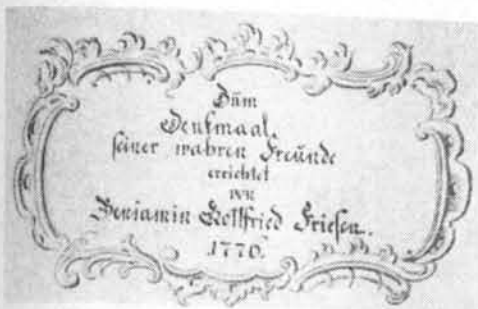 Züm
Denkmaal
seiner wahren Freünde
errichtet
von
Benjamin Gottfried Friesen.
1770.